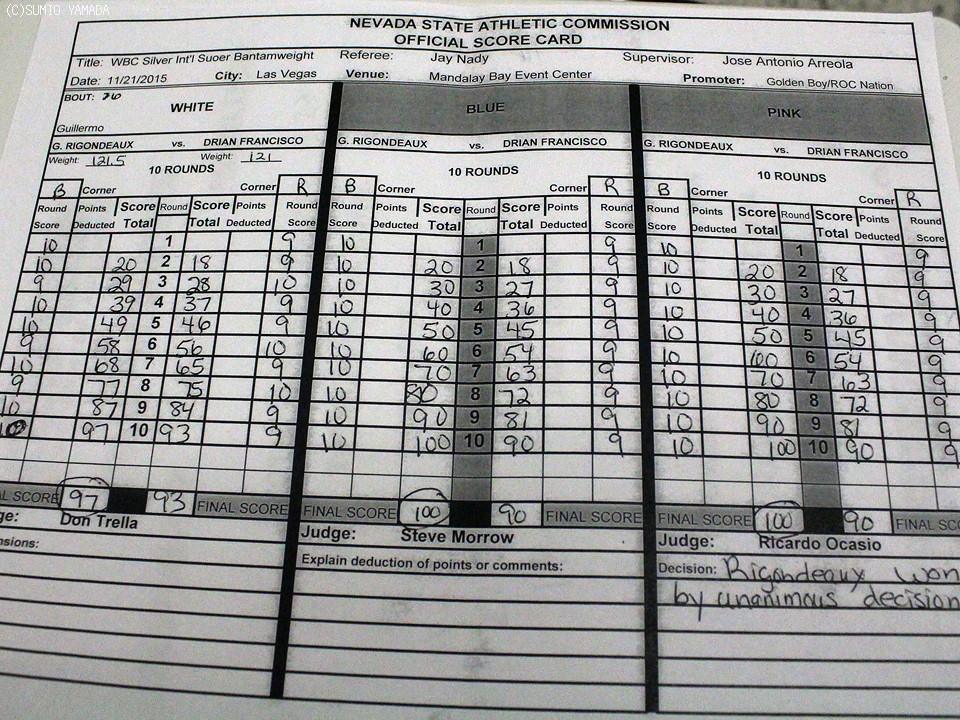 (C)SUMIO YAMADA
NEVADA STATE ATHLETIC COMMISSION
OFFICIAL SCORE CARD
Title: WBC Silver Int'l Suoer Bantamweight Referee: Jay Nady Supervisor: Jose Antonio Arreola
Date: 11/21/2015 City: Las Vegas Venue: Mandalay Bay Event Center Promoter: Golden Boy/ROC Nation
BOUT:
WHITE BLUE PINK
Guillermo
G. RIGONDEAUX vs. DRIAN FRANCISCO G. RIGONDEAUX vs. DRIAN FRANCISCO G. RIGONDEAUX vs. DRIAN FRANCISCO
Weight: 121.5 Weight: 121
10 ROUNDS 10 ROUNDS 10 ROUNDS
B Corner Corner R B Corner Corner R B Corner Corner R
Round Points Score Round Score Points Round Round Points Score Round Score Points Round Round Points Score Round Score Points Round
Score Deducted Total Total Deducted Score Score Deducted Total Total Deducted Score Score Deducted Total Total Deducted Score
10 1 9 10 1 9 10 1 9
10 20 2 18 9 10 20 2 18 9 10 20 2 18 9
9 29 3 28 10 10 30 3 27 9 10 30 3 27 9
10 39 4 37 9 10 40 4 36 9 10 40 4 36 9
10 49 5 46 9 10 50 5 45 9 10 50 5 45 9
9 58 6 56 10 10 60 6 54 9 10 60 6 54 9
10 68 7 65 9 10 70 7 63 9 10 70 7 63 9
9 77 8 75 10 10 80 8 72 9 10 80 8 72 9
10 87 9 84 9 10 90 9 81 9 10 90 9 81 9
10 97 10 93 9 10 100 10 90 9 10 100 10 90 9
AL SCORE 97 93 FINAL SCORE FINAL SCORE 100 90 FINAL SCORE FINAL SCORE 100 90 FINAL SC
ge: Don Trella Judge: Steve Morrow Judge: Ricardo Ocasio
nsions: Explain deduction of points or comments: Decision: Rigondeaux won
by unanimous decision